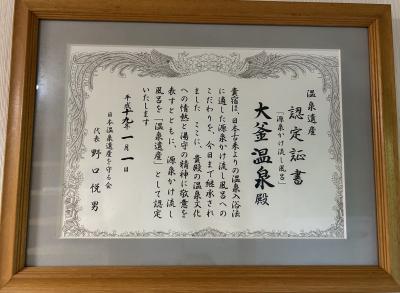 温泉遺産
「源泉かけ流し風呂」
認定証書
大釜温泉殿
貴宿は、日本古来よりの温泉入浴法
に適した源泉かけ流し風呂への
こだわりを、今日まで継承され
ました。ここに、貴殿の温泉文化
への情熱と湯守の精神に敬意を
表すとともに、源泉かけ流し
風呂を「温泉遺産」として認定
いたします
平成十九年一月一日
日本温泉遺産を守る会
代表 野口悦男